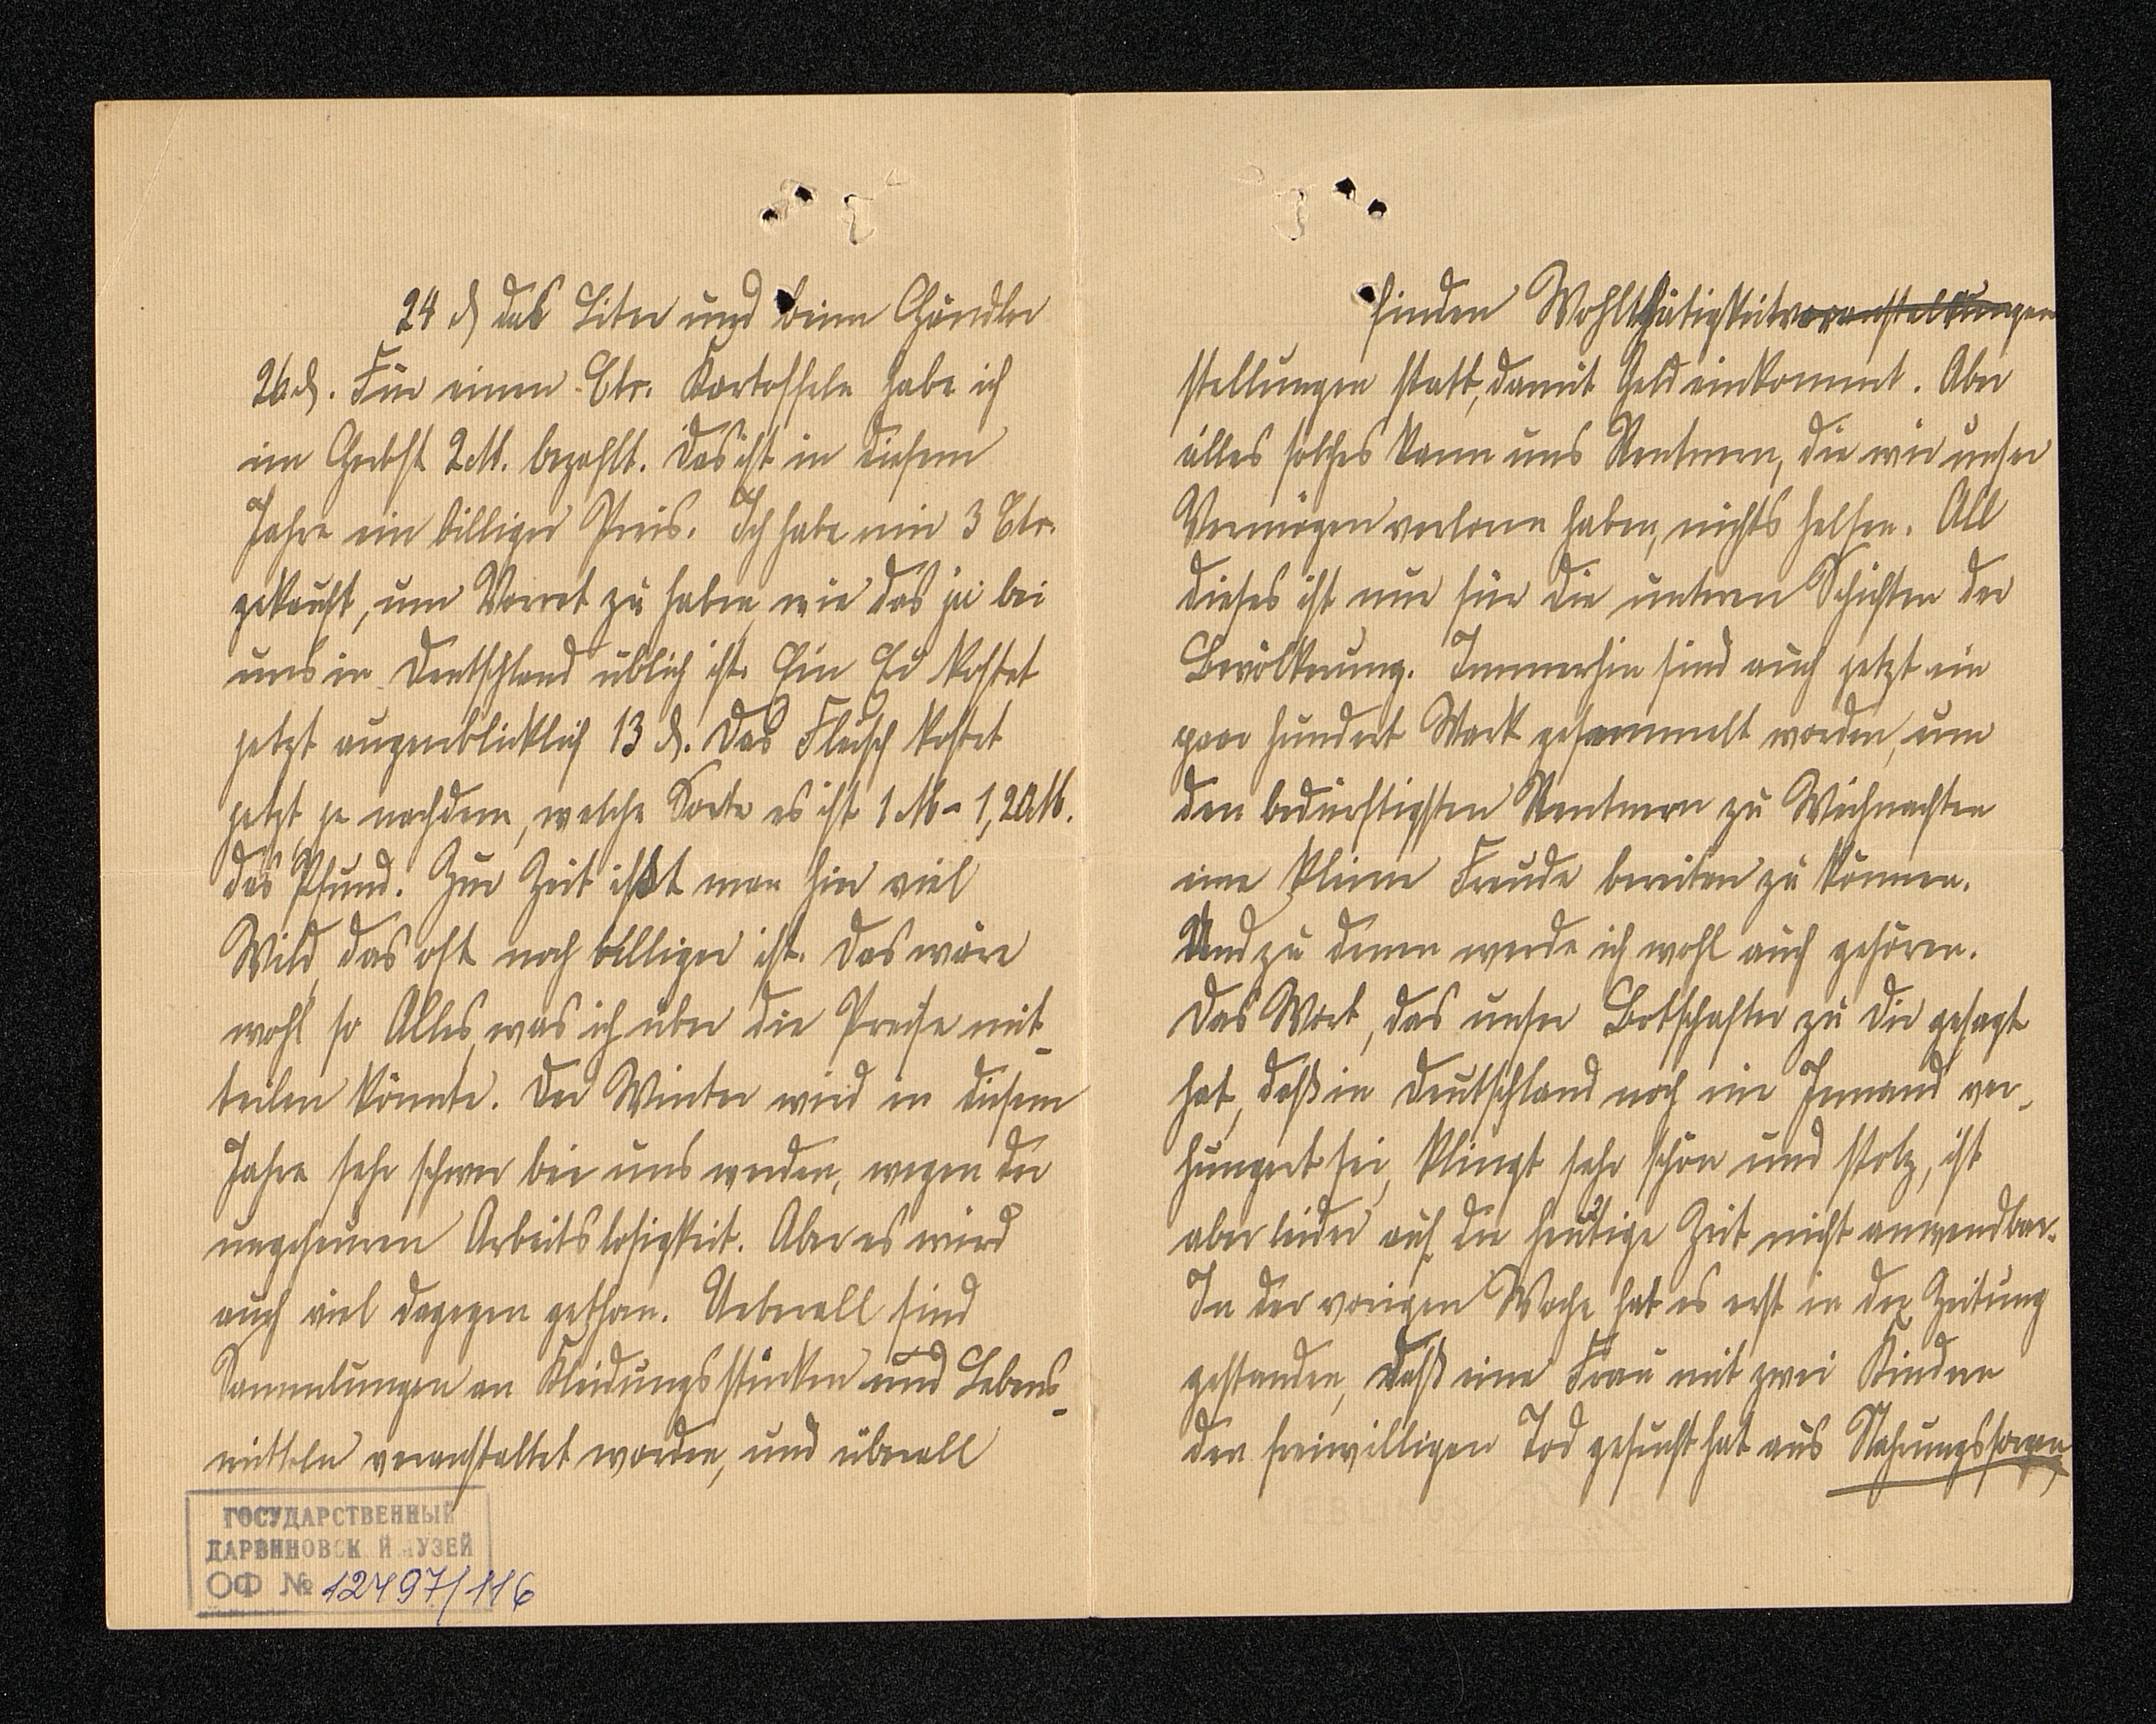 24 ₰ das Liter und beim Händler
26 ₰. Für einen Ctr. Kartoffeln habe ich
im Herbst 2 M. bezahlt. Das ist in diesem
Jahre ein billiger Preis. Ich habe mir 3 Ctr.
gekauft, um Vorrat zu haben, wie das ja bei
uns in Deutschland üblich ist. Ein Ei kostet
jetzt augenblicklich 13 ₰. Das Fleisch kostet
jetzt, je nachdem, welche Sorte es ist 1 M - 1,20 M.
das Pfund. Zur Zeit ißt man hier viel
Wild, das oft noch billiger ist. Das wäre
wohl so Alles, was ich über die Preise mit-
teilen könnte. Der Winter wird in diesem
Jahre sehr schwer bei uns werden, wegen der
ungeheuren Arbeitslosigkeit. Aber es wird
auch viel dagegen gethan. Ueberall sind
Sammlungen an Kleidungsstücken und Lebens-
mitteln veranstaltet worden, und überall
ГОСУДАРСТВЕННЫЙ
ДАРВИНОВСК Й МУЗЕЙ
ОФ № 12497/116
finden Wohlthätigkeitsveranstaltungen
stellungen statt, damit Geld einkommt. Aber
alles solches kann uns Rentnern, die wir unser
Vermögen verloren haben, nichts helfen. All
dieses ist nur für die unteren Schichten der
Bevölkerung. Immerhin sind auch jetzt ein
paar hundert Mark gesammelt worden, um
den bedürftigsten Rentnern zu Weihnachten
eine kleine Freude bereiten zu können.
Und zu denen werde ich wohl auch gehören.
Das Wort, das unser Botschafter zu Dir gesagt
hat, daß in Deutschland noch nie Jemand ver-
hungert sei, klingt sehr schön und stolz, ist
aber leider auf die heutige Zeit nicht anwendbar.
In der vorigen Woche hat es erst in der Zeitung
gestanden, daß eine Frau mit zwei Kindern
den freiwilligen Tod gesucht hat aus Nahrungssorgen,